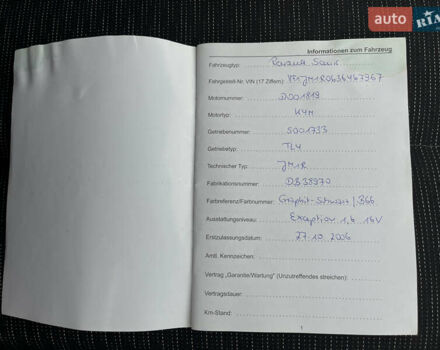 auto RIA
Informationen zum Fahrzeug
Fahrzeugtyp: Renault Scenic
Fahrgestell-Nr. VIN (17 Ziffern): VF1JM1R0636463967
Motornummer: D001819
Motortyp: K4M
Getriebenummer: S001733
Getriebetyp: TL4
Technischer Typ: JM1R
Fabrikationsnummer: D838970
Farbreferenz/Farbnummer: Graphit-Schwarz / B66
Ausstattungsniveau: Exception 1,6 16V
Erstzulassungsdatum: 27.10.2006
Amtl. Kennzeichen:
Vertrag „Garantie/Wartung" (Unzutreffendes streichen):
Vertragsdauer:
Km-Stand:
1